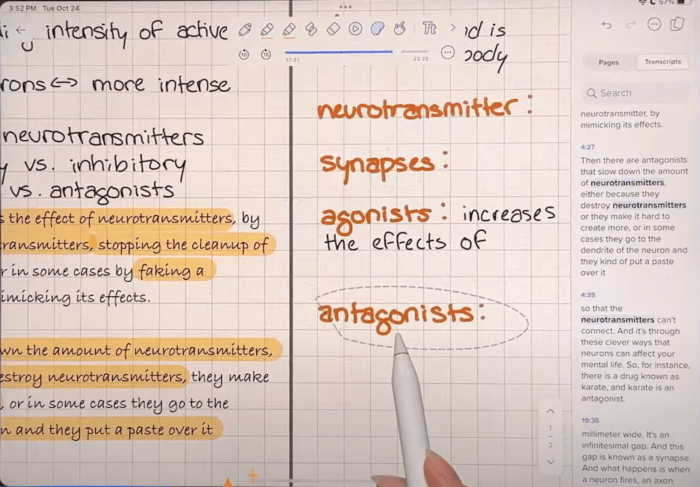 3:52 PM Tue Oct 24
57%
intensity of active
rons ↔ more intense
neurotransmitters
vs. inhibitory
vs. antagonists
s the effect of neurotransmitters, by
ransmitters, stopping the cleanup of
r in some cases by faking a
imicking its effects.
wn the amount of neurotransmitters,
estroy neurotransmitters, they make
, or in some cases they go to the
n and they put a paste over it
is
body
17:31
neurotransmitter:
synapses:
agonists: increases
the effects of
antagonists:
1
2
Pages
Transcripts
Search
neurotransmitter, by
mimicking its effects.
4:27
Then there are antagonists
that slow down the amount
of neurotransmitters,
either because they
destroy neurotransmitters
or they make it hard to
create more, or in some
cases they go to the
dendrite of the neuron and
they kind of put a paste
over it
4:39
so that the
neurotransmitters can't
connect. And it's through
these clever ways that
neurons can affect your
mental life. So, for instance,
there is a drug known as
karate, and karate is an
antagonist.
19:35
millimeter wide. It's an
infinitesimal gap. And this
gap is known as a synapse.
And what happens is when
a neuron fires, an axon